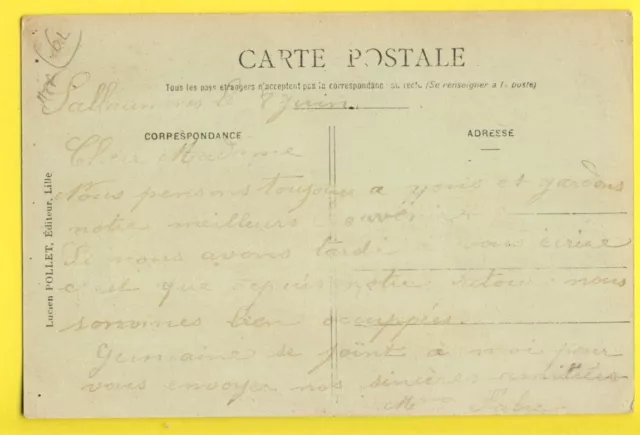 CARTE POSTALE
Tous les pays étrangers n'acceptent pas la correspondance au recto (Se renseigner à la poste)
le 8 Juin
CORRESPONDANCE
ADRESSE
Chère Madame
Nous pensons toujours a vous et gardons
notre meilleurs souvenir
Si nous avons tardé a vous écrire
c'est que depuis notre retour nous
sommes bien occupées.
Germaine se joint à moi pour
vous envoyer nos sincères amitiées
Mme Fabre
Lucien POLLET, Éditeur, Lille